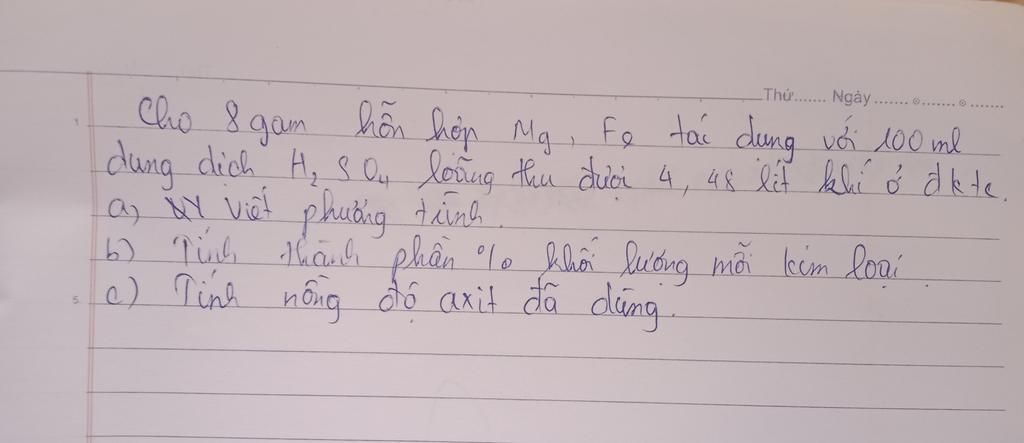 Thứ....... Ngày ....... ⊙....... ⊙ .......
Cho 8 gam hỗn hợp Mg, Fe tác dung với 100 ml
dung dich H₂SO₄ loãng thu được 4,48 lít khí ở đktc.
a) Viết phương trình.
b) Tính thành phần % khối lượng mỗi kim loại.
c) Tính nồng độ axit đã dùng.
1
5